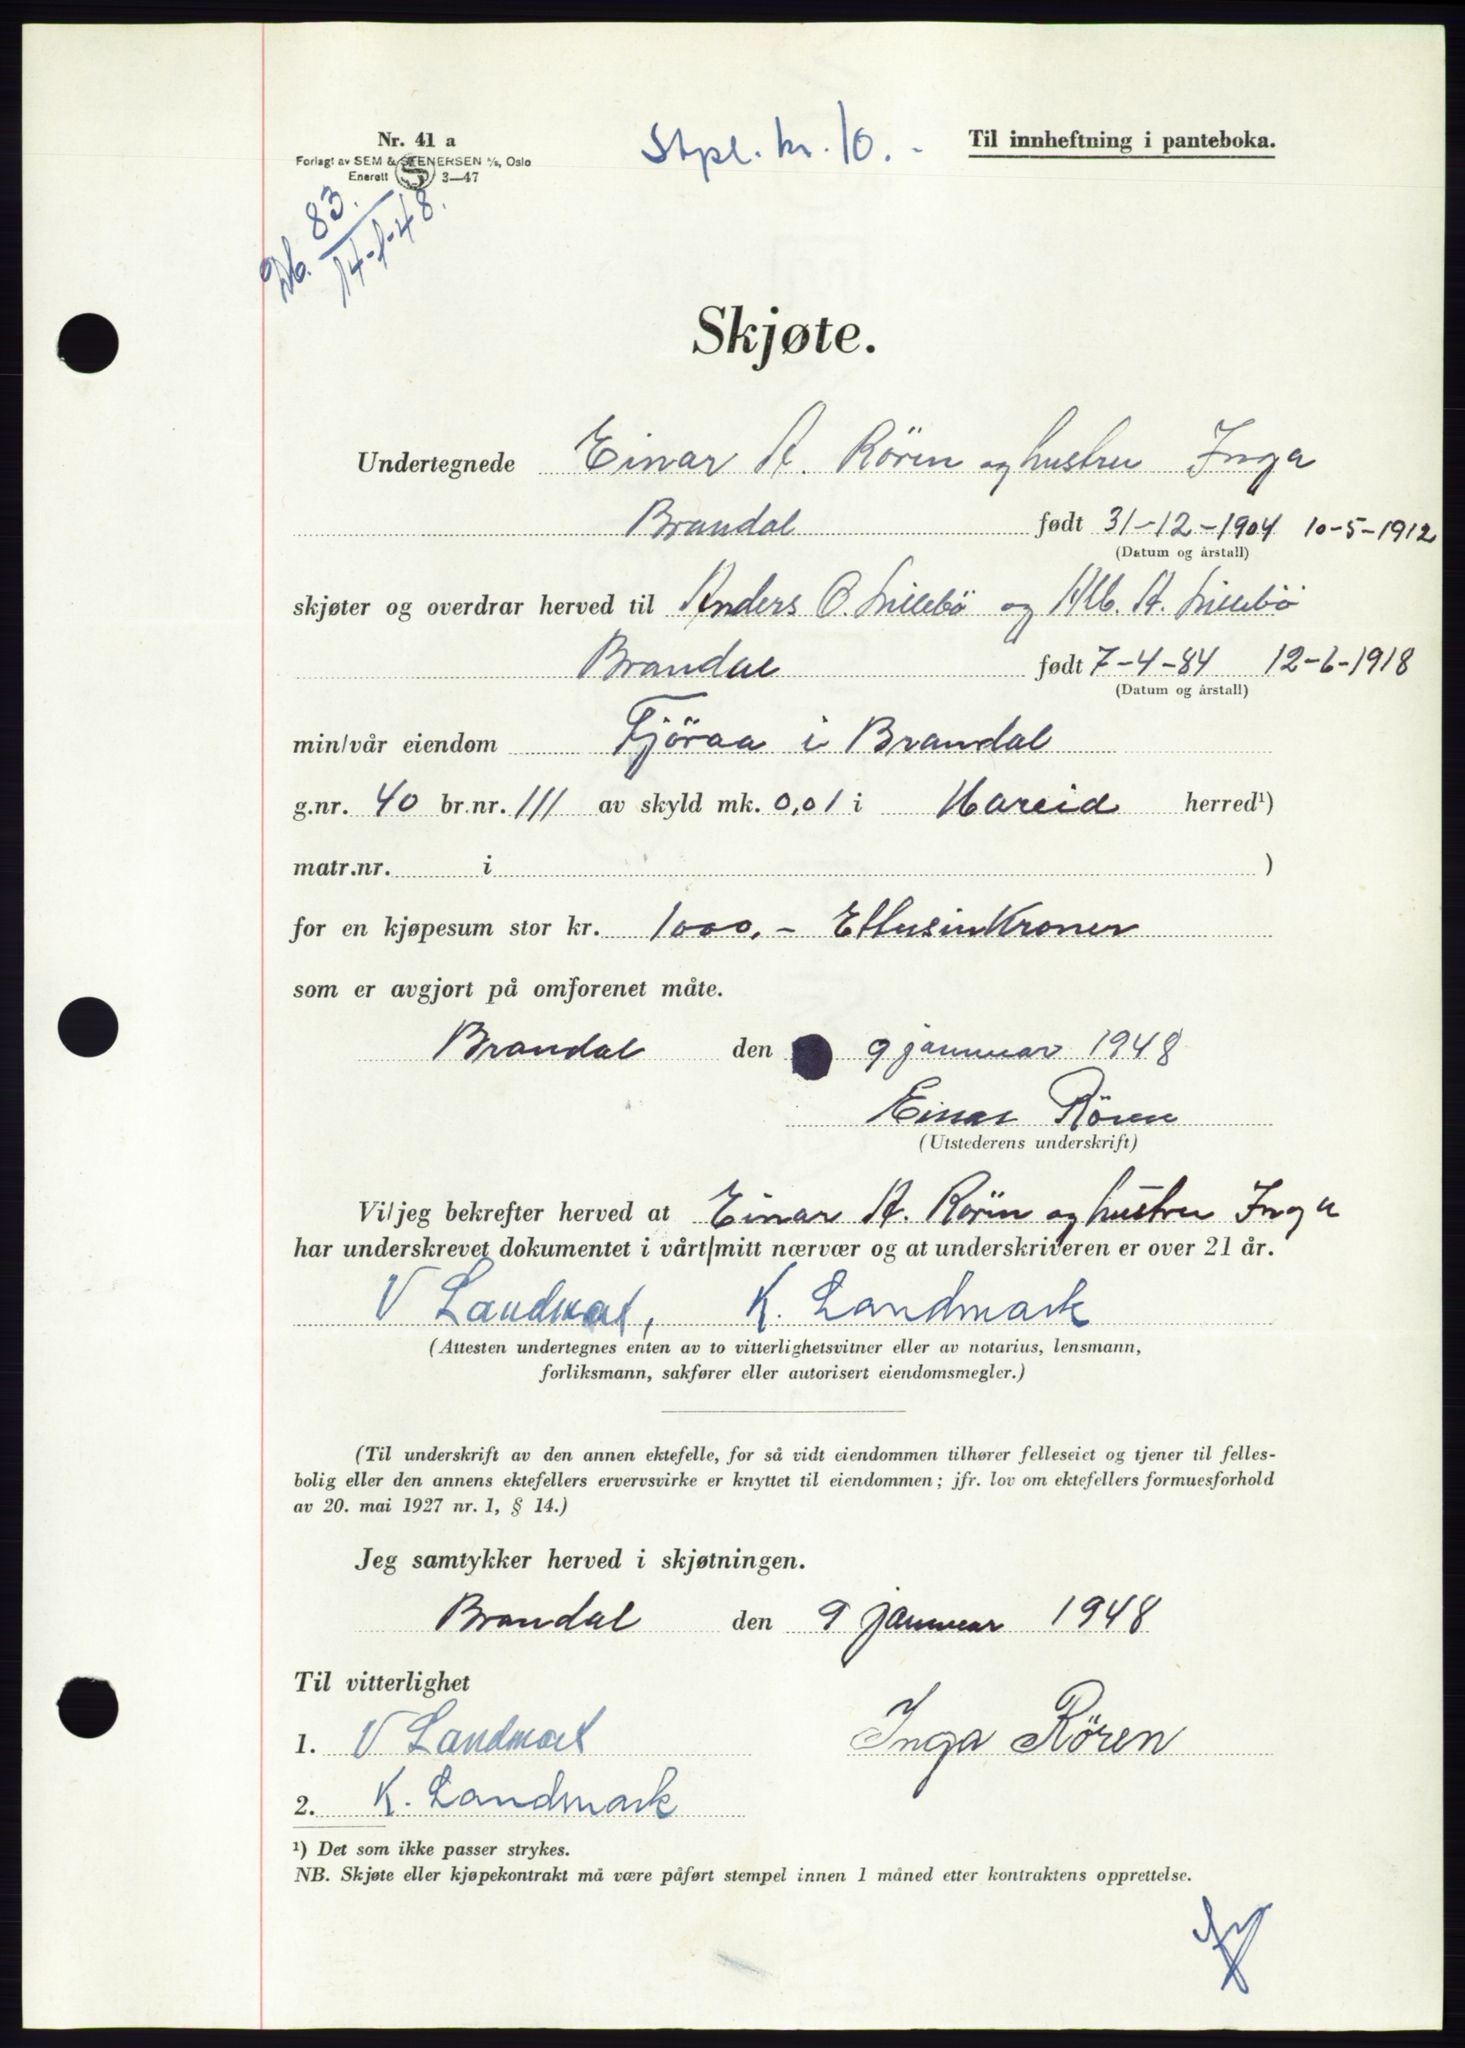 Nr. 41 a
Forlagt av SEM & STENERSEN A/S, Oslo
Enerett 3—47
Stpl. kr. 10.-
Til innheftning i panteboka.
Db. 83.
14-1-48.
Skjøte.
Undertegnede Einar A. Rören og hustru Inga
Brandal født 31-12-1904 10-5-1912
(Datum og årstall)
skjøter og overdrar herved til Anders O. Lillebö og Alb. A. Lillebö
Brandal født 7-4-84 12-6-1918
(Datum og årstall)
min/vår eiendom Fjöraa i Brandal
g.nr. 40 br.nr. 111 av skyld mk. 0,01 i Hareid herred¹)
matr.nr. i )
for en kjøpesum stor kr. 1000.- EttusinKroner
som er avgjort på omforenet måte.
Brandal den 9 januar 1948
Einar Rören
(Utstederens underskrift)
Vi/jeg bekrefter herved at Einar A. Rörin og hustru Inga
har underskrevet dokumentet i vårt/mitt nærvær og at underskriveren er over 21 år.
V Landmark, K. Landmark
(Attesten undertegnes enten av to vitterlighetsvitner eller av notarius, lensmann,
forliksmann, sakfører eller autorisert eiendomsmegler.)
(Til underskrift av den annen ektefelle, for så vidt eiendommen tilhører felleseiet og tjener til felles-
bolig eller den annens ektefellers ervervsvirke er knyttet til eiendommen; jfr. lov om ektefellers formuesforhold
av 20. mai 1927 nr. 1, § 14.)
Jeg samtykker herved i skjøtningen.
Brandal den 9 januar 1948
Til vitterlighet
1. V Landmark Inga Rören
2. K. Landmark
¹) Det som ikke passer strykes.
NB. Skjøte eller kjøpekontrakt må være påført stempel innen 1 måned etter kontraktens opprettelse.